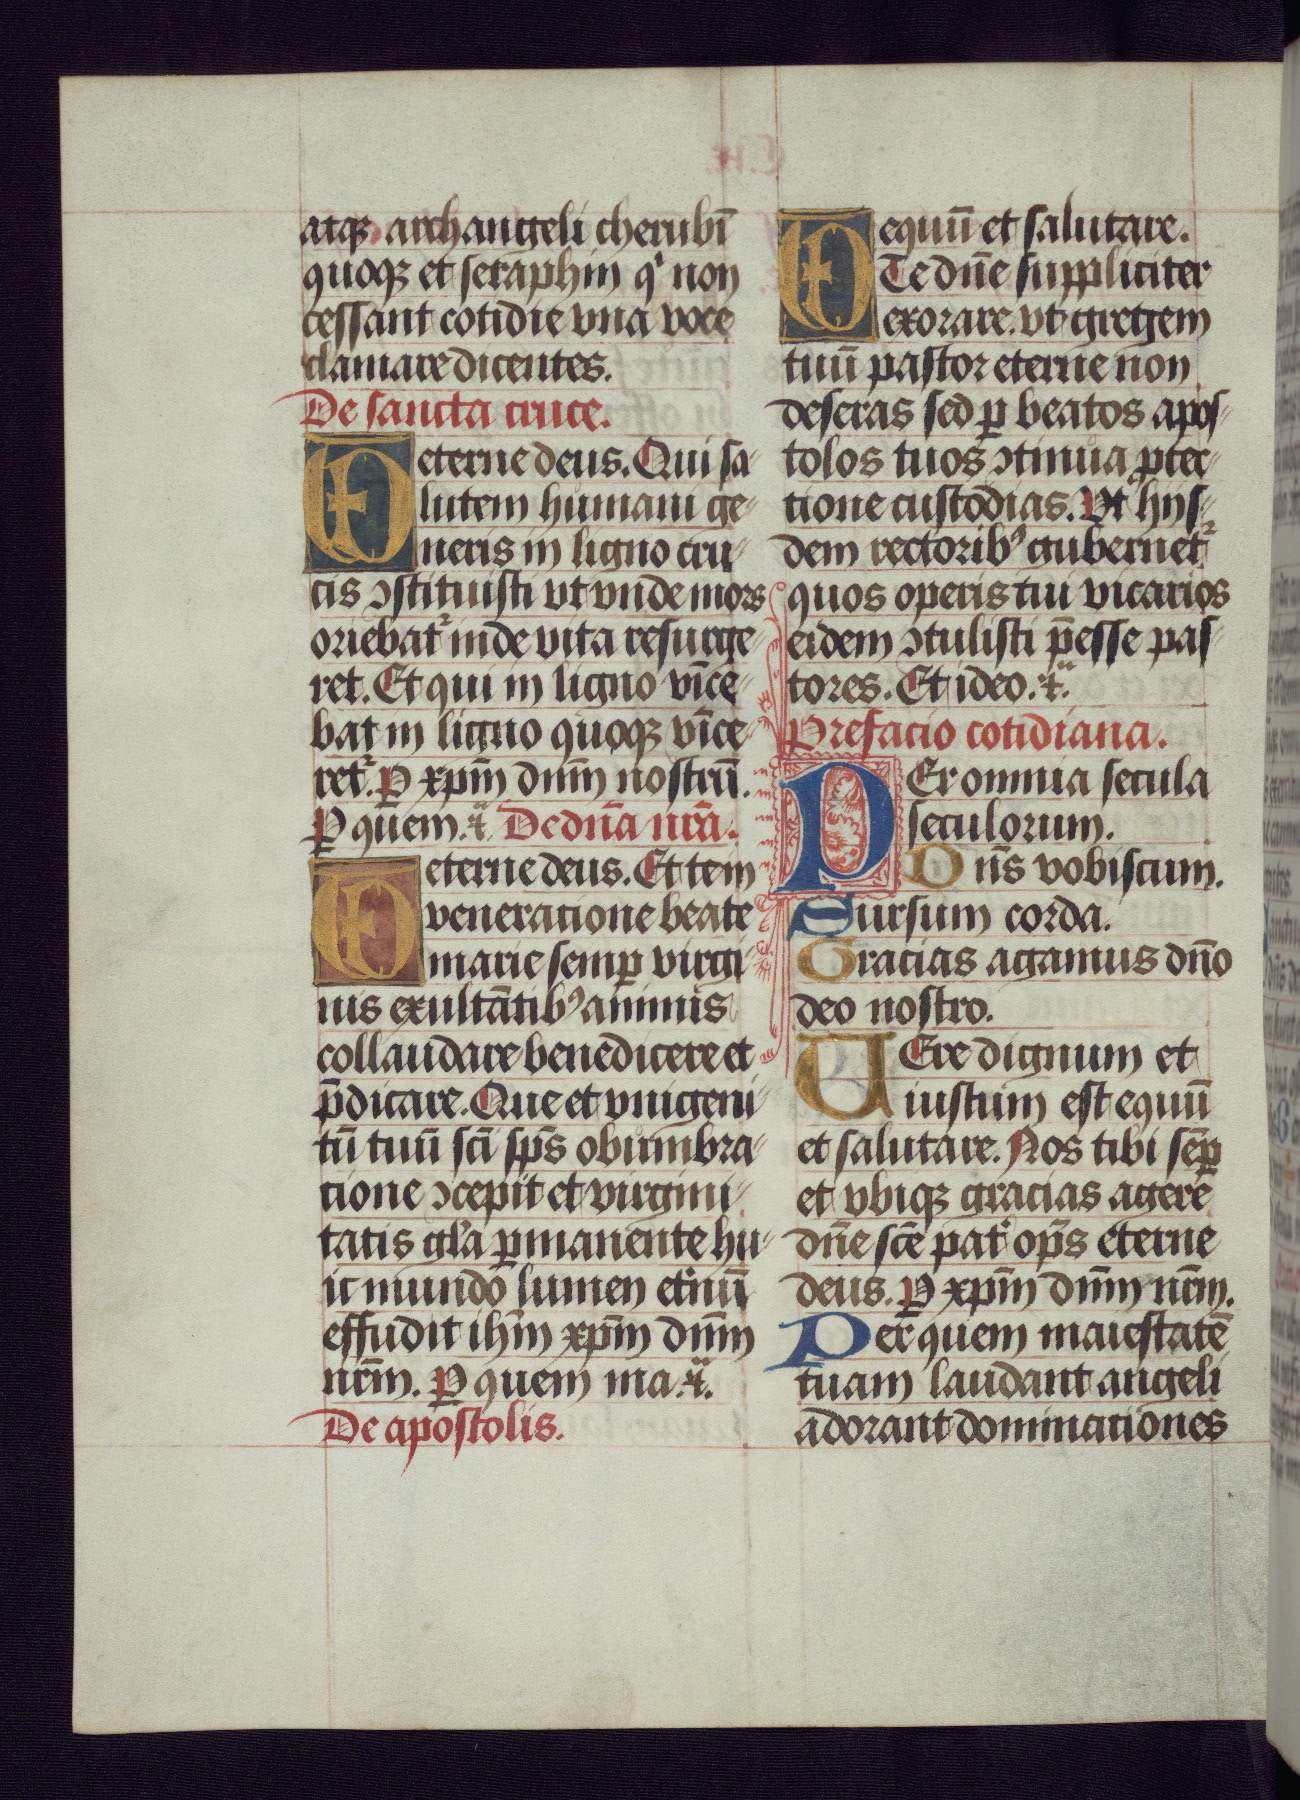 atqꝫ archangeli cherubī
quoqꝫ et seraphin qͥ non
cessant cotidie vna voce
clamare dicentes.
De sancta cruce.
eterne deus. Qui sa-
lutem humani ge-
neris in ligno cru-
cis ꝯstituisti vt vnde mors
oriebat᷑ inde vita resurge-
ret. Et qui in ligno vīce-
bat in ligno quoqꝫ vīce-
ret᷑. P xpm̄ dnm̄ nostrū.
Ꝑ quem. ⁊ͣ. De dn̄a nr̄a.
eterne deus. Et te in
veneratione beate
marie semꝑ virgi-
nis exultātibꝰ animis
collaudare benedicere et
p̄dicare. Que et vnigeni-
tū tuū sc̄i sp̄s obumbra-
tione ꝯcepit et virgini-
tatis gl̄a ꝑmanente hu-
ic mundo lumen et̄nū
effudit ihm̄ xpm̄ dnm̄
nr̄m. P quem ma. ⁊ͣ.
De apostolis.
equū et salutare.
Te dn̄e suppliciter
exorare. vt gregem
tuū pastor eterne non
deseras sed ꝑ beatos apos-
tolos tuos ꝯtinua ꝓtec-
tione custodias. Vt hijs-
dem rectoribꝰ gubernet᷑
quos operis tui vicarios
eidem ꝯtulisti p̄esse pas-
tores. Et ideo. ⁊ͣ.
Prefacio cotidiana.
PEr omnia secula
seculorum.
Dn̄s vobiscum.
Sursum corda.
Gracias agamus dn̄o
deo nostro.
UEre dignum et
iustum est equū
et salutare. Nos tibi sēꝑ
et vbiqꝫ gracias agere
dn̄e sc̄e pat̄ op̄s eterne
deus. P xpm̄ dnm̄ nr̄m.
Per quem maiestatē
tuam laudant angeli
adorant dominationes